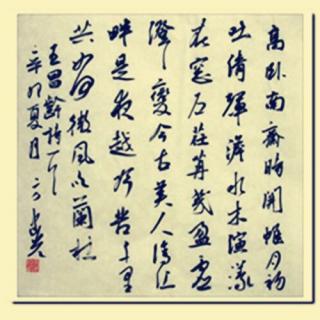 高卧南齋時開帷月初
吐清輝澹水木演漾
在窗户荏苒幾盈虚
澄變今古美人清江
畔是夜越吟苦千里
共如何微風吹蘭杜
王昌齡詩一首
辛卯夏月